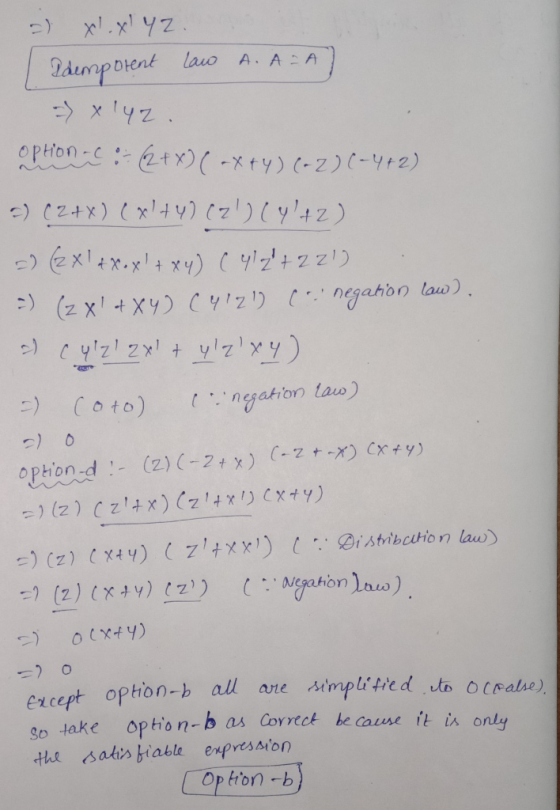 =) x'.x'yz.
Idempotent law A.A=A
=> x'yz.
option-c :- (z+x)(-x+y)(-z)(-y+z)
=) (z+x)(x'+y)(z')(y'+z)
=) (zx'+x.x'+xy)(y'z'+zz')
=) (zx'+xy)(y'z') (∵ negation law).
=) (y'z'zx' + y'z'xy)
=) (0+0) (∵ negation law)
=) 0
option-d :- (z)(-z+x)(-z+-x)(x+y)
=) (z)(z'+x)(z'+x')(x+y)
=) (z)(x+y)(z'+xx') (∵ Distribution law)
=) (z)(x+y)(z') (∵ Negation law).
=) 0(x+y)
=) 0
Except option-b all are simplified to 0(False).
so take option-b as correct because it is only
the satisfiable expression
Option-b